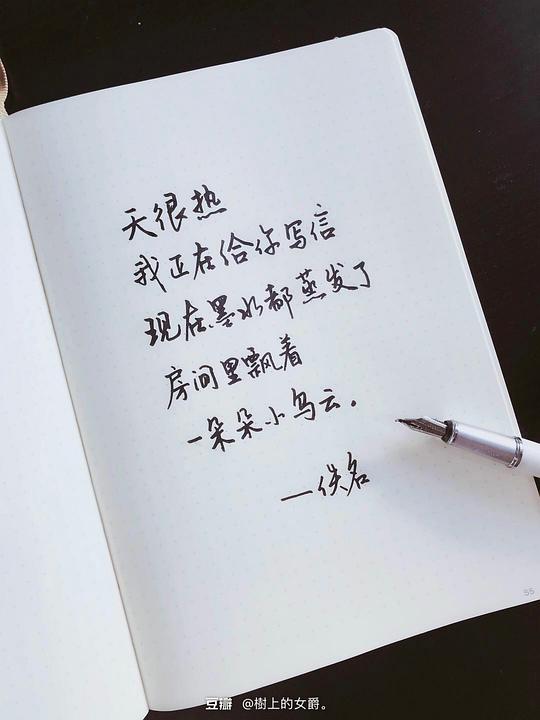 天很热
我正在给你写信
现在墨水都蒸发了
房间里飘着
一朵朵小乌云。
—佚名
55
豆瓣 @樹上的女爵。